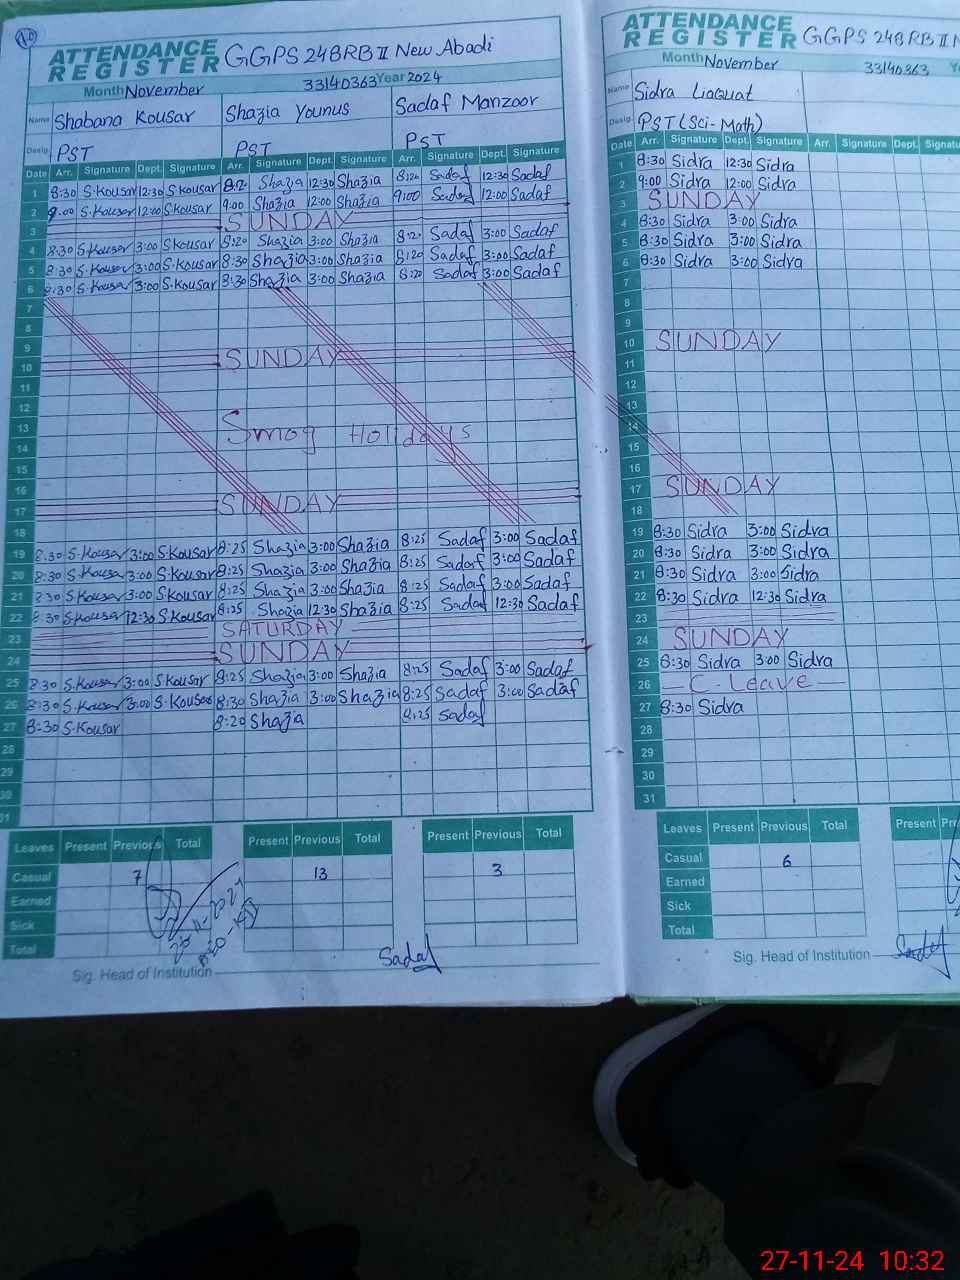 10
ATTENDANCE REGISTER GGPS 248RB II New Abadi
Month November 33140363 Year 2024
Name Shabana Kousar Shazia Younus Sadaf Manzoor
Desig. PST PST PST
Date Arr. Signature Dept. Signature Arr. Signature Dept. Signature Arr. Signature Dept. Signature
1 8:30 S.Kousar 12:30 S.Kousar 8:20 Shazia 12:30 Shazia 8:20 Sadaf 12:30 Sadaf
2 9:00 S.Kousar 12:00 S.Kousar 9:00 Shazia 12:00 Shazia 9:00 Sadaf 12:00 Sadaf
3 SUNDAY
4 8:30 S.Kousar 3:00 S.Kousar 8:20 Shazia 3:00 Shazia 8:20 Sadaf 3:00 Sadaf
5 8:30 S.Kousar 3:00 S.Kousar 8:30 Shazia 3:00 Shazia 8:20 Sadaf 3:00 Sadaf
6 8:30 S.Kousar 3:00 S.Kousar 8:30 Shazia 3:00 Shazia 8:20 Sadaf 3:00 Sadaf
7
8
9
10 SUNDAY
11
12
13 Smog Holidays
14
15
16
17 SUNDAY
18
19 8:30 S.Kousar 3:00 S.Kousar 8:25 Shazia 3:00 Shazia 8:25 Sadaf 3:00 Sadaf
20 8:30 S.Kousar 3:00 S.Kousar 8:25 Shazia 3:00 Shazia 8:25 Sadaf 3:00 Sadaf
21 8:30 S.Kousar 3:00 S.Kousar 8:25 Shazia 3:00 Shazia 8:25 Sadaf 3:00 Sadaf
22 8:30 S.Kousar 12:30 S.Kousar 8:25 Shazia 12:30 Shazia 8:25 Sadaf 12:30 Sadaf
23 SATURDAY
24 SUNDAY
25 8:30 S.Kousar 3:00 S.Kousar 8:25 Shazia 3:00 Shazia 8:25 Sadaf 3:00 Sadaf
26 8:30 S.Kousar 3:00 S.Kousar 8:30 Shazia 3:00 Shazia 8:25 Sadaf 3:00 Sadaf
27 8:30 S.Kousar 8:20 Shazia 8:25 Sadaf
28
29
30
31
Leaves Present Previous Total Present Previous Total Present Previous Total
Casual 7 13 3
Earned
Sick
Total
Sadaf
Sig. Head of Institution
ATTENDANCE REGISTER GGPS 248RB II
Month November 33140363
Name Sidra Liaquat
Desig. PST (Sci-Math)
Date Arr. Signature Dept. Signature Arr. Signature Dept.
1 8:30 Sidra 12:30 Sidra
2 9:00 Sidra 12:00 Sidra
3 SUNDAY
4 8:30 Sidra 3:00 Sidra
5 8:30 Sidra 3:00 Sidra
6 8:30 Sidra 3:00 Sidra
7
8
9
10 SUNDAY
11
12
13
14
15
16
17 SUNDAY
18
19 8:30 Sidra 3:00 Sidra
20 8:30 Sidra 3:00 Sidra
21 8:30 Sidra 3:00 Sidra
22 8:30 Sidra 12:30 Sidra
23
24 SUNDAY
25 8:30 Sidra 3:00 Sidra
26 C. Leave
27 8:30 Sidra
28
29
30
31
Leaves Present Previous Total Present
Casual 6
Earned
Sick
Total
Sig. Head of Institution Sadaf
27-11-24 10:32